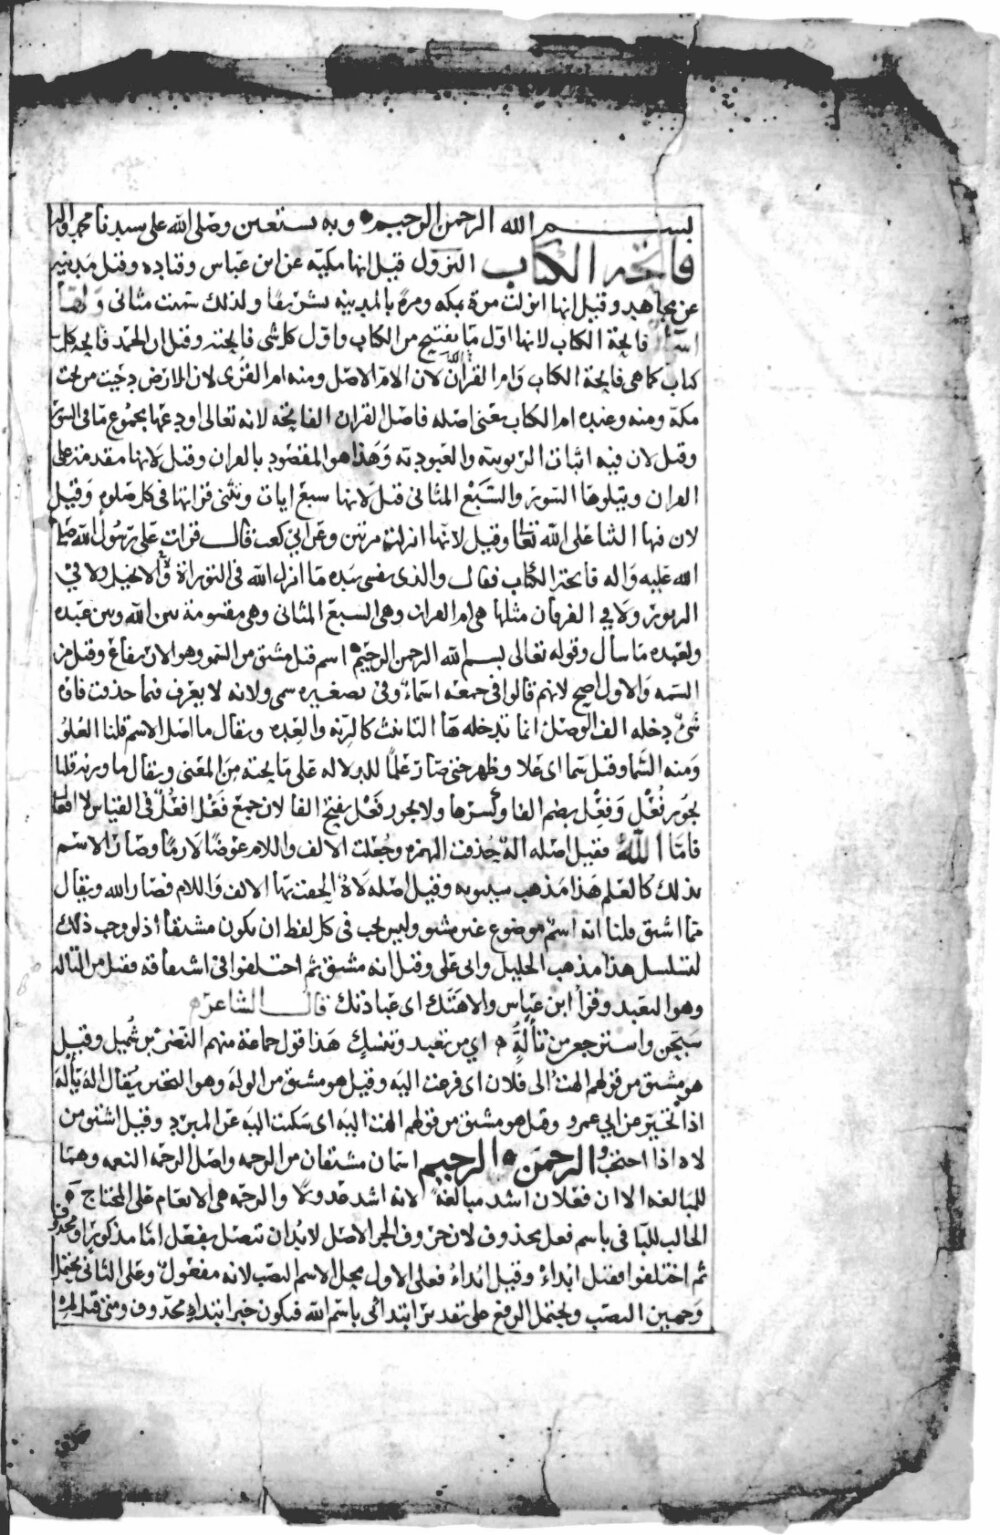 بسم الله الرحمن الرحيم وبه نستعين وصلى الله على سيدنا محمد واله
فاتحة الكتاب النزول قيل انها مكية عن ابن عباس وقتاده وقيل مدنيه
عن مجاهد وقيل انها انزلت مرة بمكه ومرة بالمدينه تشريفا ولذلك سميت مثانى ولها
اسما فاتحة الكتاب لانها اول ما يفتتح من الكتاب واول كل شى فاتحته وقيل ان الحمد فاتحه كل
كتاب كما هى فاتحة الكتاب وام القران لان الام الاصل ومنه ام القرى لان الارض دحيت من تحت
مكة ومنه وعنده ام الكتاب يعنى اصله فاصل القران الفاتحه لانه تعالى اودعها مجموع ما فى السور
وقيل لان فيه اثبات الربوبيه والعبوديه وهذا هو المقصود بالقران وقيل لانها مقدمة على
القران ويتلوها السور والسبع المثانى قيل لانها سبع ايات وتثنى قراتها فى كل صلوه وقيل
لان فيها الثنا على الله تعا وقيل لانها انزلت مرتين وعن ابي كعب قال قرات على رسول الله صلى
الله عليه واله فاتحة الكتاب فقال والذى نفسى بيده ما انزل الله فى التوراة والانجيل ولا في
الزبور ولا في الفرقان مثلها هى ام القران وهى السبع المثانى وهى مقسومة بين الله وبين عبده
ولعبده ما سال وقوله تعالى بسم الله الرحمن الرحيم اسم قيل مشتق من السمو وهو الارتفاع وقيل من
السمه والاول اصح لانهم قالوا فى جمعه اسماء وفى تصغيره سمى ولانه لا يعرف فيما حذفت فاه
شئ دخله الف الوصل انما تدخله ها التانيث كالزنه والعده ويقال ما اصل الاسم قلنا العلو
ومنه السما وقيل سما اى علا وظهر حتى صار علما للدلاله على ما تحته من المعنى ويقال ما وزنه قلنا
يجوز فُعْل وفِعْل بضم الفا وكسرها ولا يجوز فَعْل بفتح الفا لان جمع فَعْل افعُل فى القياس لا افعال
فاما الله فقيل اصله اله حذفت الهمزه وجعلت الالف واللام عوضا لازما وصار الاسم
بذلك كالعلم هذا مذهب سيبويه وقيل اصله لاه الحقت بها الالف واللام فصار الله ويقال
مما اشتق قلنا انه اسم موضوع غير مشتق وليس يجب فى كل لفظ ان يكون مشتقا اذ لو وجب ذلك
لتسلسل هذا مذهب الخليل وابى على وقيل انه مشتق ثم اختلفوا فى اشتقاقه فقيل من التاله
وهو التعبد وقرا ابن عباس والاهتك اى عبادتك قال الشاعر
سبحن واسترجعن من تاله اي من تعبد وتنسك هذا قول جماعة منهم النضر بن شميل وقيل
هو مشتق من قولهم الهت الى فلان اى فزعت اليه وقيل هو مشتق من الوله وهو التحير يقال اله يأله
اذا تحير عن ابي عمرو وقيل هو مشتق من قولهم الهت اليه اى سكنت اليه عن المبرد وقيل اشتق من
لاه اذا احتجب الرحمن الرحيم اسمان مشتقان من الرحمه واصل الرحمة النعمه وهما
للمبالغه الا ان فعلان اشد مبالغة لانه اشد عدولا والرحمه هى الانعام على المحتاج
الجالب للبا فى باسم فعل محذوف لان حروف الجر الاصل لابد ان تتصل بفعل اما مذكور او محذوف
ثم اختلفوا فقيل ابداء وقيل ابداء فعلى الاول محل الاسم النصب لانه مفعول وعلى الثانى يحتمل
وجهين النصب ويحتمل الرفع على تقدير ابتدائى باسم الله فيكون خبر ابتداء محذوف ومتى قيل لم